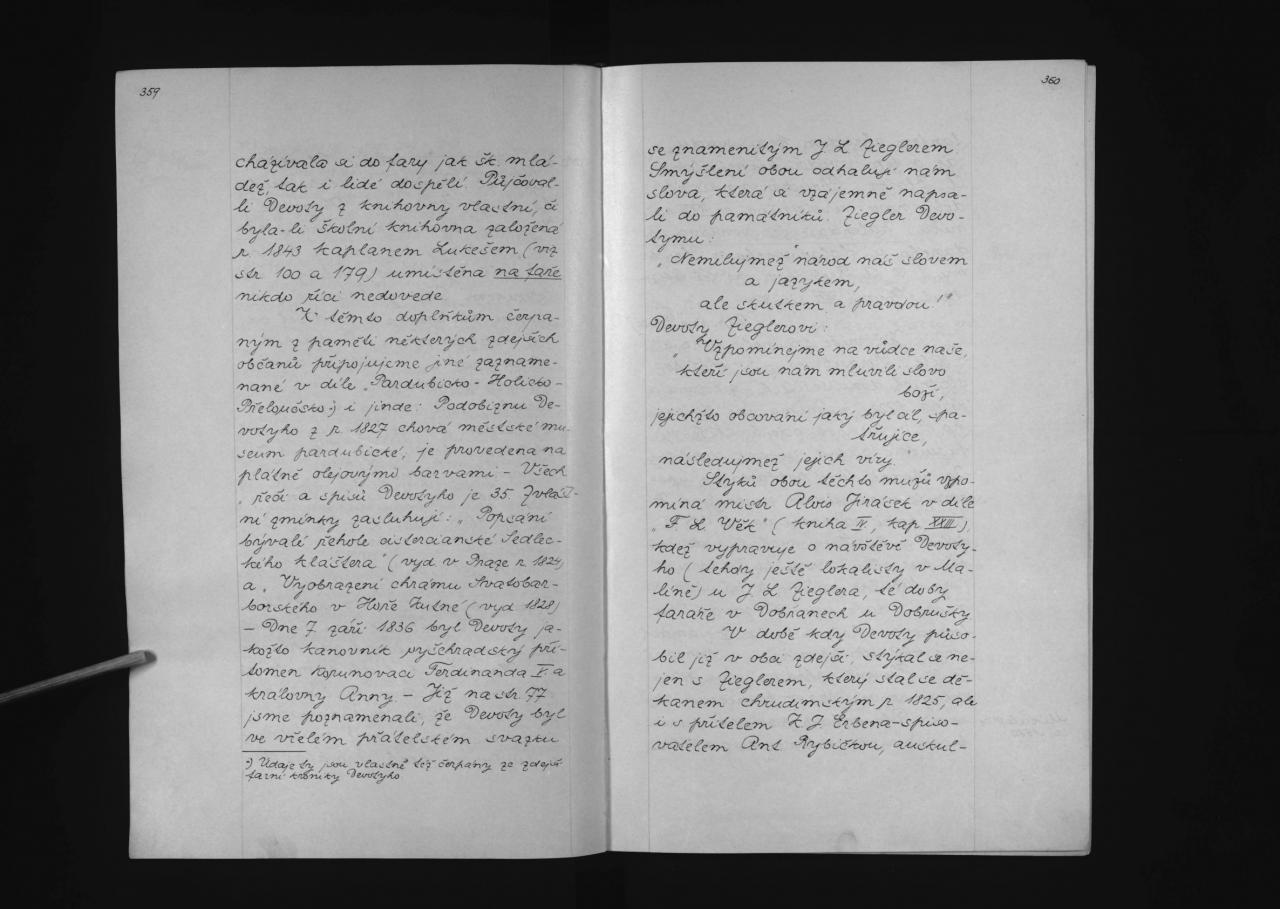 359
cházívala si do fary jak šk. mlá-
dež, tak i lidé dospělí. Půjčoval-
li Devoty z knihovny vlastní, či
byla-li školní knihovna založená
r. 1843 kaplanem Lukešem (viz
str. 100 a 179) umístěna na faře
nikdo říci nedovede.
K těmto doplňkům čerpa-
ným z paměti některých zdejších
občanů připojujeme jiné zazname-
nané v díle „Pardubicko-Holicko-
Přeloučsko⁺) i jinde: Podobiznu De-
votyho z r. 1827 chová městské mu-
seum pardubické, je provedena na
plátně olejovými barvami. – Všech
„řečí a spisů Devotyho je 35. Zvlášt-
ní zmínky zasluhují: „Popsání
bývalé řehole cisterciánské Sedlec-
kého kláštera" (vyd. v Praze r. 1824)
a „Vyobrazení chrámu Svatobar-
borského v Hoře Kutné (vyd. 1828)
– Dne 7. září 1836 byl Devoty ja-
kožto kanovník vyšehradský pří-
tomen korunovaci Ferdinanda V. a
královny Anny. – Již na str. 77
jsme poznamenali, že Devoty byl
ve vřelém přátelském svazku
⁺) Údaje ty jsou vlastně též čerpány ze zdejší
farní kroniky Devotyho.
360
se znamenitým J. L. Zieglerem.
Smýšlení obou odhalují nám
slova, která si vzájemně napsa-
li do památníků. Ziegler Devo-
tymu:
„Nemilujmež národ náš slovem
a jazykem,
ale skutkem a pravdou!"
Devoty Zieglerovi:
„Vzpomínejme na vůdce naše,
kteří jsou nám mluvili slovo
boží,
jejichžto obcování jaký byl cíl, spa-
třujíce,
následujmež jejich víry."
Styků obou těchto mužů vzpo-
míná mistr Alois Jirásek v díle
„F. L. Věk" (kniha IV., kap. XXIII.),
kdež vypravuje o návštěvě Devoty-
ho (tehdy ještě lokalisty v Ma-
líně) u J. L. Zieglera, té doby
faráře v Dobřanech u Dobrušky.
V době kdy Devoty půso-
bil již v obci zdejší, stýkal se ne-
jen s Zieglerem, který stal se dě-
kanem chrudimským r. 1825, ale
i s přítelem K. J. Erbena-spiso-
vatelem Ant. Rybičkou, auskul-